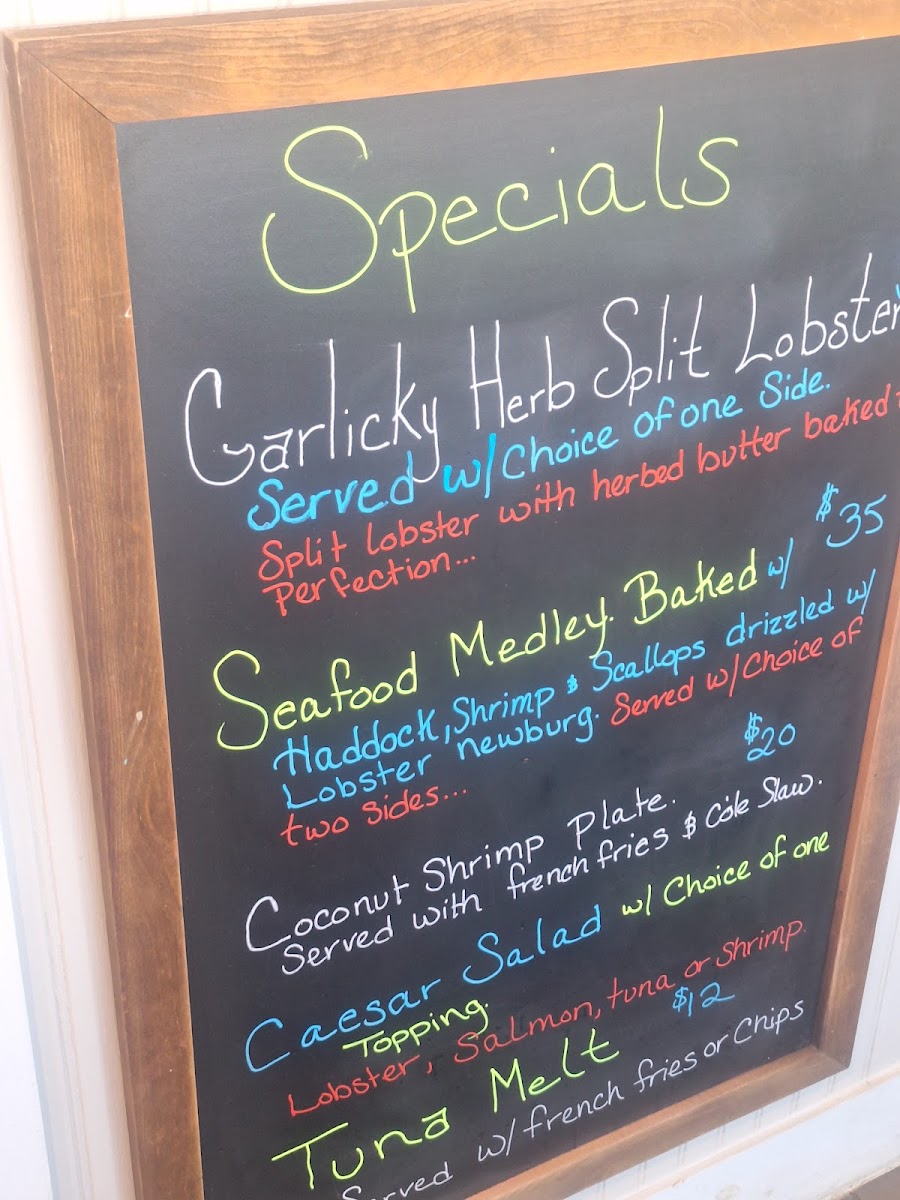 Specials
Garlicky Herb Split Lobster
Served w/ Choice of one Side.
Split lobster with herbed butter baked
Perfection...
$35
Seafood Medley. Baked w/
Haddock, Shrimp & Scallops drizzled w/
Lobster newburg. Served w/ Choice of
two sides...
$20
Coconut Shrimp Plate.
Served with french fries & Cole Slaw.
Caesar Salad w/ Choice of one
Topping.
Lobster, Salmon, tuna or Shrimp.
Tuna Melt $12
Served w/ french fries or Chips